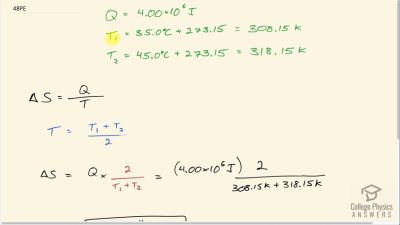 48PE
Q = 4.00×10⁶ J
T₁ = 35.0°C + 273.15 = 308.15 K
T₂ = 45.0°C + 273.15 = 318.15 K
ΔS = Q/T
T = (T₁ + T₂)/2
ΔS = Q × 2/(T₁+T₂) = (4.00×10⁶ J) 2/(308.15K + 318.15K)
College Physics
ANSWERS